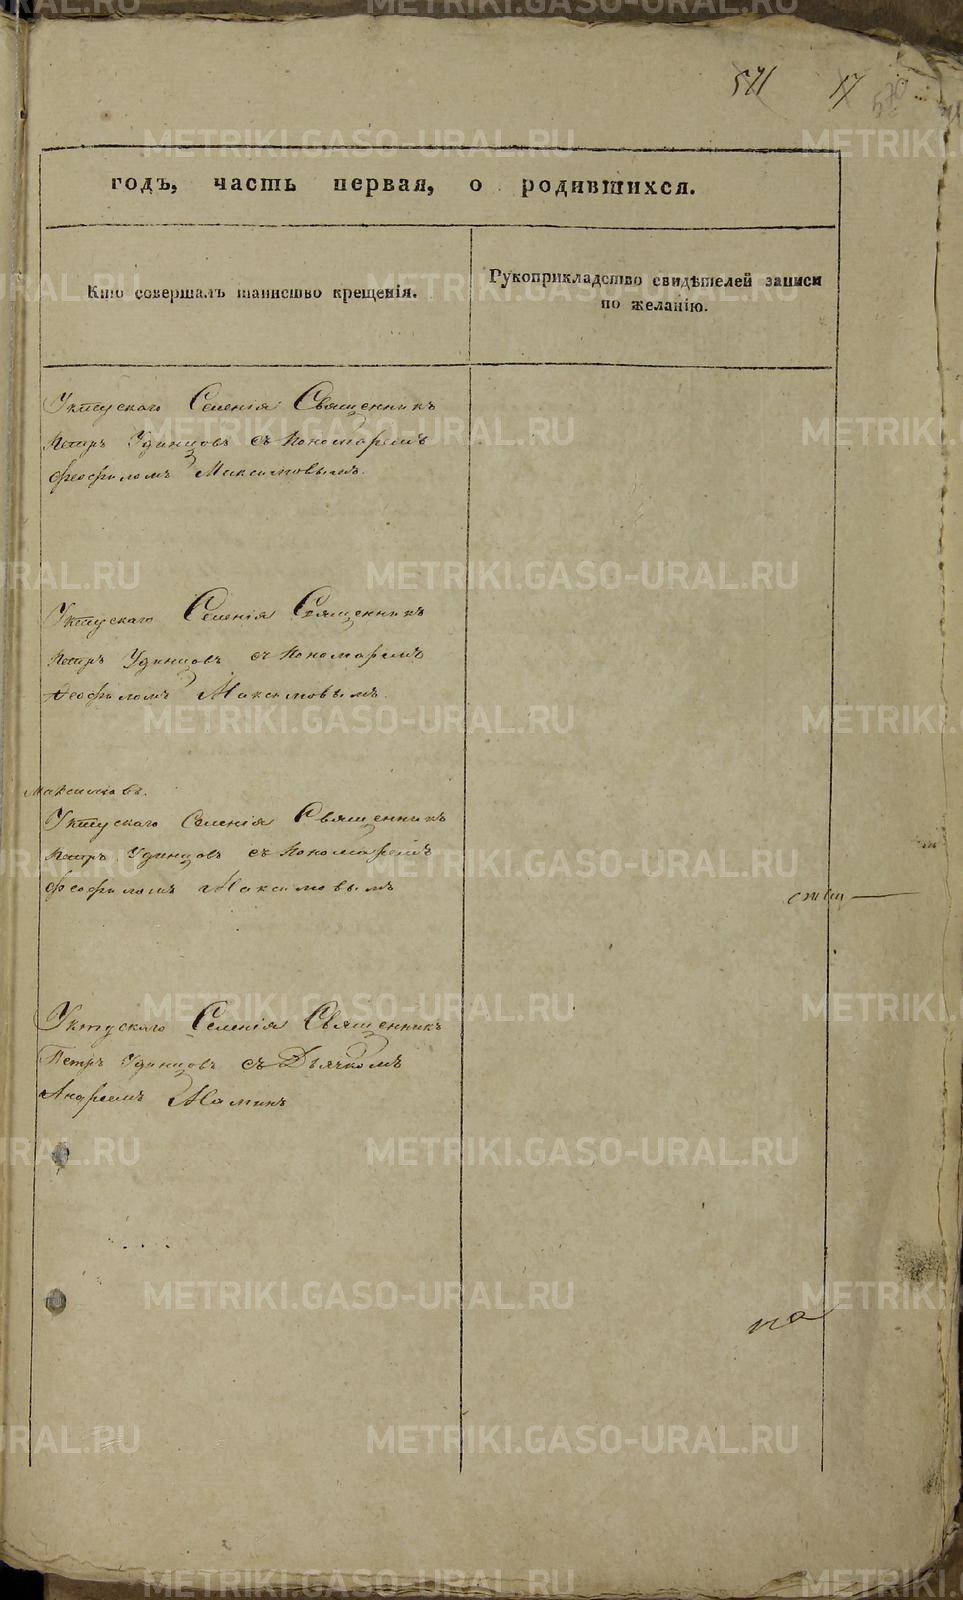 571 17 570
годъ, часть первая, о родившихся.
Кто совершалъ таинство крещенія.
Рукоприкладство свидѣтелей записи
по желанію.
Уктускаго Селенія Священникъ
Петръ Удинцовъ съ Пономаремъ
Феофиломъ Максимовымъ.
Уктускаго Селенія Священникъ
Петръ Удинцовъ съ Пономаремъ
Феофиломъ Максимовымъ.
Максимовъ.
Уктускаго Селенія Священникъ
Петръ Удинцовъ съ Пономаремъ
Феофиломъ Максимовымъ
Уктускаго Селенія Священникъ
Петръ Удинцовъ съ Дьячкомъ
Андреемъ Маминъ
по
METRIKI.GASO-URAL.RU